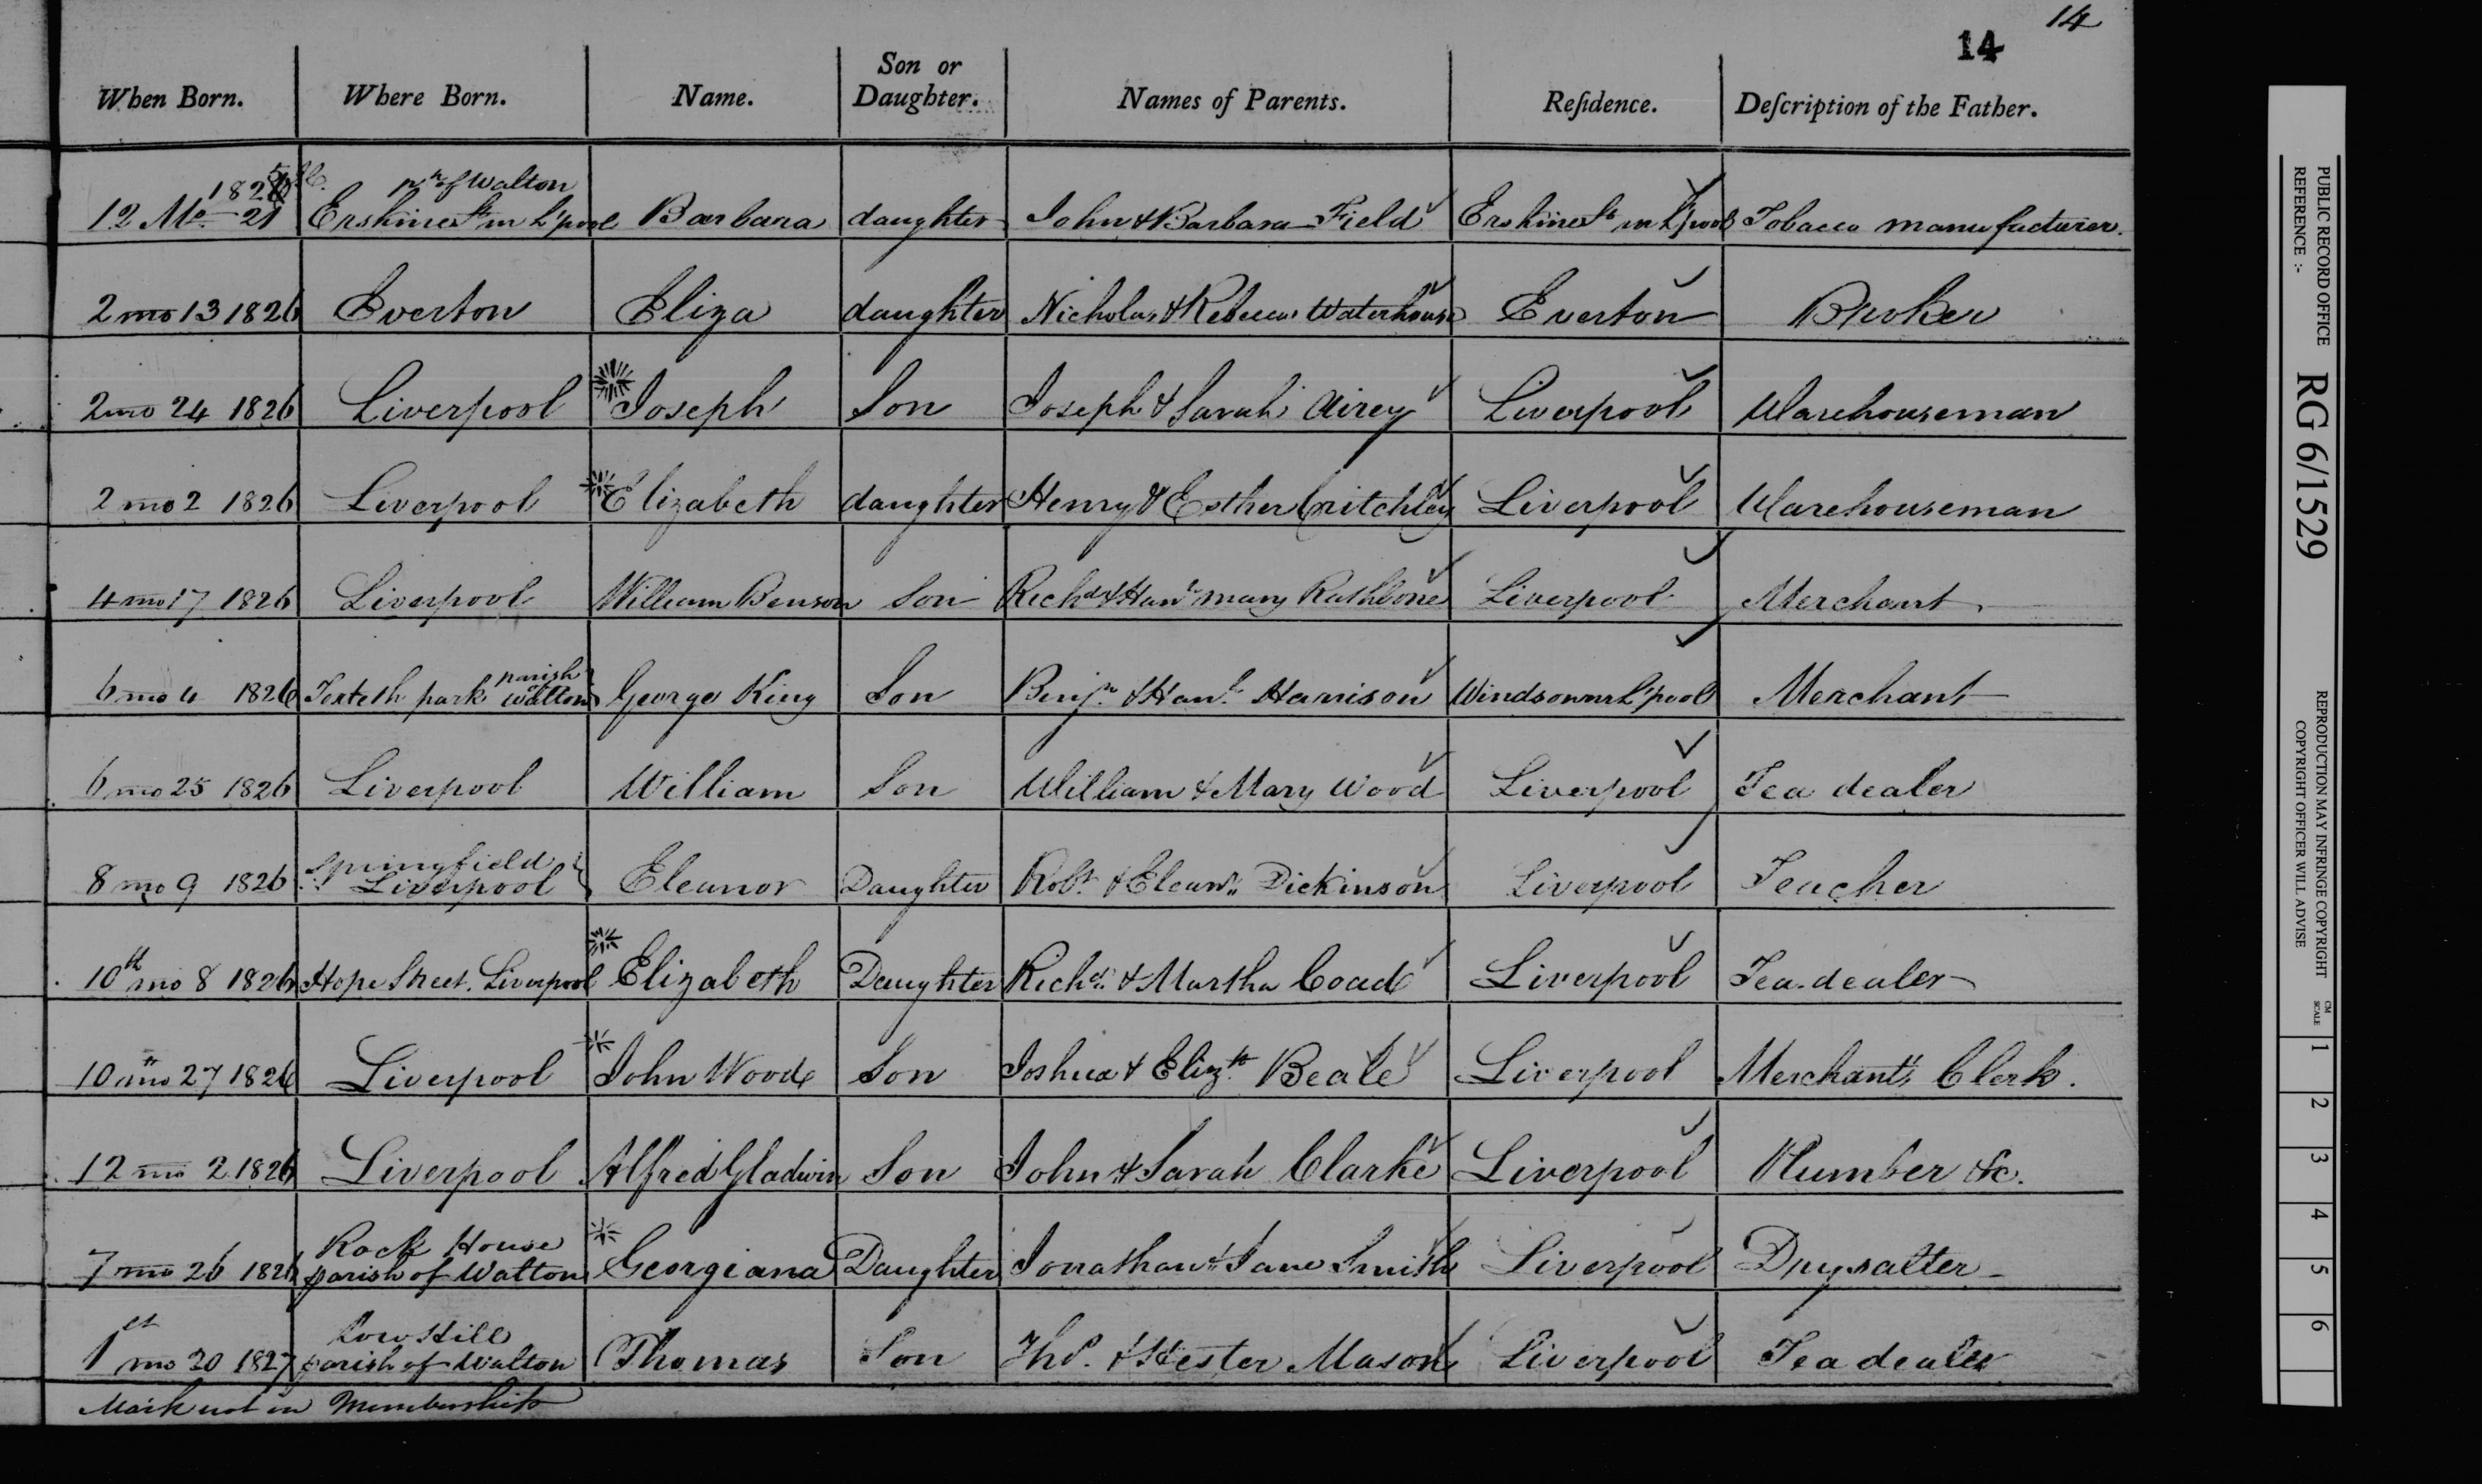 14
14
When Born. Where Born. Name. Son or Daughter. Names of Parents. Residence. Description of the Father.
pr. of Walton
12 Mo 21 1825 Erskine St in L'pool Barbara daughter John & Barbara Field Erskine St in L'pool Tobacco manufacturer.
2 mo 13 1826 Everton Eliza daughter Nicholas & Rebecca Waterhouse Everton Broker
2 mo 24 1826 Liverpool Joseph Son Joseph & Sarah Airey Liverpool Warehouseman
2 mo 2 1826 Liverpool Elizabeth daughter Henry & Esther Critchley Liverpool Warehouseman
4 mo 17 1826 Liverpool William Benson Son Richd & Hanh mary Rathbone Liverpool Merchant
parish of
6 mo 4 1826 Toxteth park Walton George King Son Benjn & Hanh Harrison Windsor nr L'pool Merchant
6 mo 25 1826 Liverpool William Son William & Mary Wood Liverpool Tea dealer
Springfield
8 mo 9 1826 Liverpool Eleanor Daughter Robt & Eleanr Dickinson Liverpool Teacher
10th mo 8 1826 Hope Street. Liverpool Elizabeth Daughter Richd & Martha Coad Liverpool Tea dealer
10th mo 27 1826 Liverpool John Wood Son Joshua & Elizth Beale Liverpool Merchant's Clerk.
12 mo 2 1826 Liverpool Alfred Gladwin Son John & Sarah Clarke Liverpool Plumber &c.
Rock House
7 mo 26 1826 parish of Walton Georgiana Daughter Jonathan & Jane Smith Liverpool Drysalter
Low Hill
1st mo 20 1827 parish of Walton Thomas Son Thos. & Hester Mason Liverpool Tea dealer
Mark not in Membership
PUBLIC RECORD OFFICE
REFERENCE :-
RG 6/1529
REPRODUCTION MAY INFRINGE COPYRIGHT
COPYRIGHT OFFICER WILL ADVISE
CM
SCALE
1
2
3
4
5
6